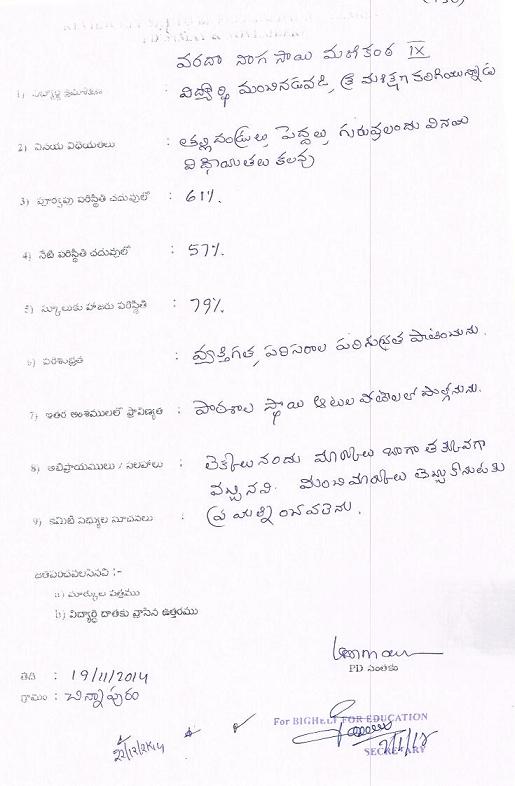 వరదా నాగ సాయి మణికంఠ IX
1) విద్యార్థి క్రమశిక్షణ : విద్యార్థి మంచినడవడి, క్రమశిక్షణ కలిగియున్నాడు
2) వినయ విధేయతలు : తల్లిదండ్రులు, పెద్దలు, గురువులందు వినయ
విధేయతలు కలవు
3) పూర్వపు పరిస్థితి చదువులో : 61%.
4) నేటి పరిస్థితి చదువులో : 57%.
5) స్కూలుకు హాజరు పరిస్థితి : 79%.
6) పరిశుభ్రత : వ్యక్తిగత, పరిసరాల పరిశుభ్రత పాటించును.
7) ఇతర అంశములలో ప్రావీణ్యత : పాఠశాల స్థాయి ఆటల పోటీలలో పాల్గొనును.
8) అభిప్రాయములు / సలహాలు : లెక్కలునందు మార్కులు బాగా తక్కువగా
వచ్చినవి. మంచిమార్కులు తెచ్చుకొనుటకు
9) కమిటీ సభ్యుల సూచనలు : ప్రయత్నించవలెను.
జతపరచవలసినవి :-
a) మార్కుల పత్రము
b) విద్యార్థి దాతకు వ్రాసిన ఉత్తరము
PD సంతకం
తేది : 19/11/2014
గ్రామం : చిన్నాపురం
For BIGHELP FOR EDUCATION
22/12/2k14
SECRETARY